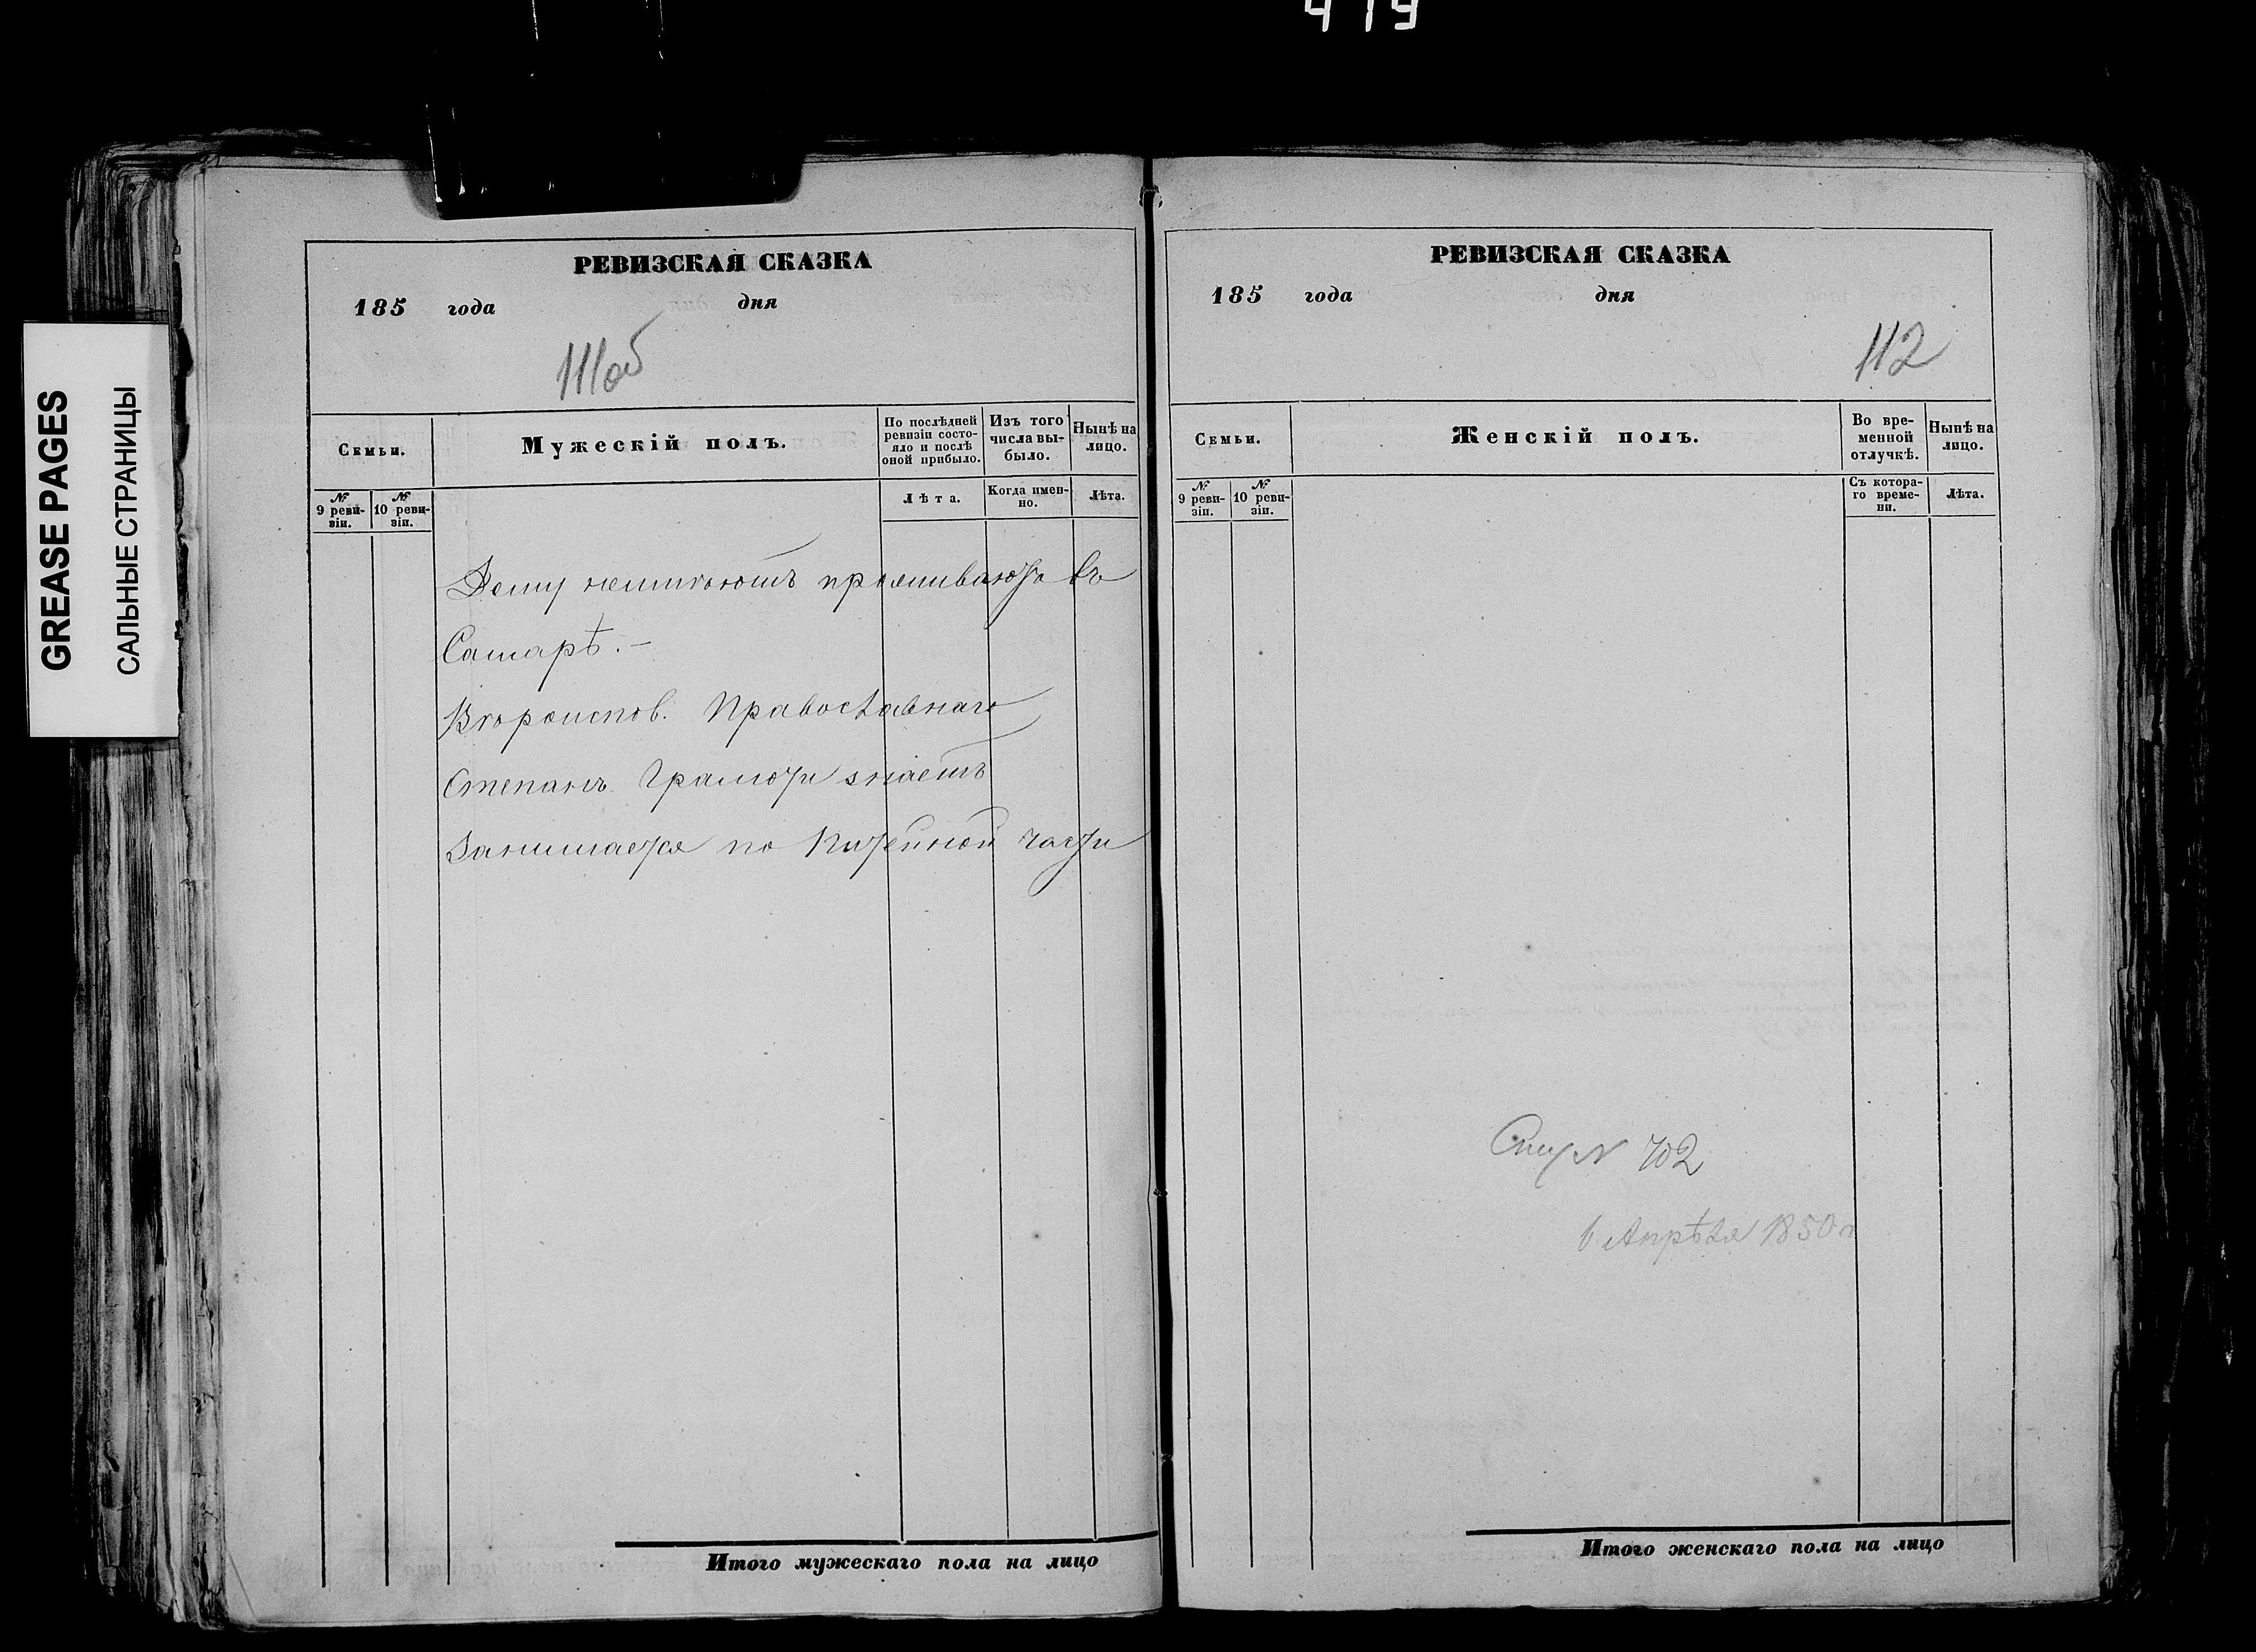 419
GREASE PAGES
САЛЬНЫЕ СТРАНИЦЫ
РЕВИЗСКАЯ СКАЗКА
185 года дня
111об
Семьи.
Мужескій полъ.
По послѣдней
ревизіи состо-
яло и послѣ
оной прибыло.
Изъ того
числа вы-
было.
Нынѣ на
лицо.
№ 9 реви-
зіи.
№ 10 реви-
зіи.
Лѣта.
Когда имен-
но.
Лѣта.
Дому неимеютъ проживаютъ въ
Самарѣ. —
Вероиспов. Православнаго
Степанъ Грамоти знаетъ
Занимается по Питейной части
Итого мужескаго пола на лицо
РЕВИЗСКАЯ СКАЗКА
185 года дня
112
Семьи.
Женскій полъ.
Во вре-
менной
отлучкѣ.
Нынѣ на
лицо.
№ 9 реви-
зіи.
№ 10 реви-
зіи.
Съ котора-
го време-
ни.
Лѣта.
№ 702
Апрѣля 1850
Итого женскаго пола на лицо